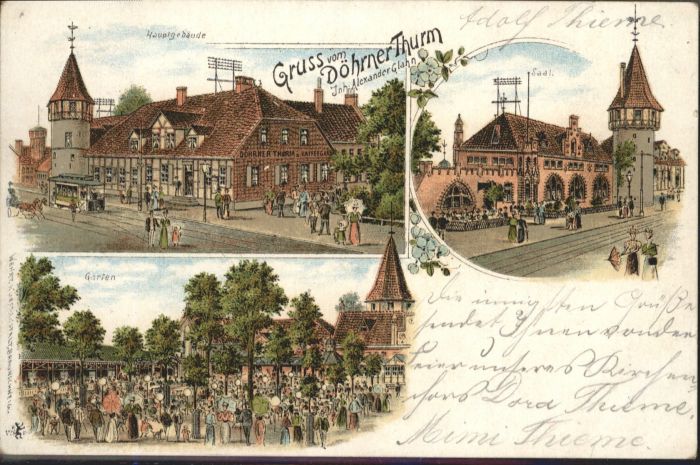 Adolf Thieme.
Hauptgebäude
Gruss vom
Döhrner Thurm
Inh. Alexander Glahn
Saal.
DÖHRNER THURM
Garten
Die innigsten Grüße
sendet Ihnen von der
Feier unseres Kirchen
chors Dora Thieme
Mimi Thieme.